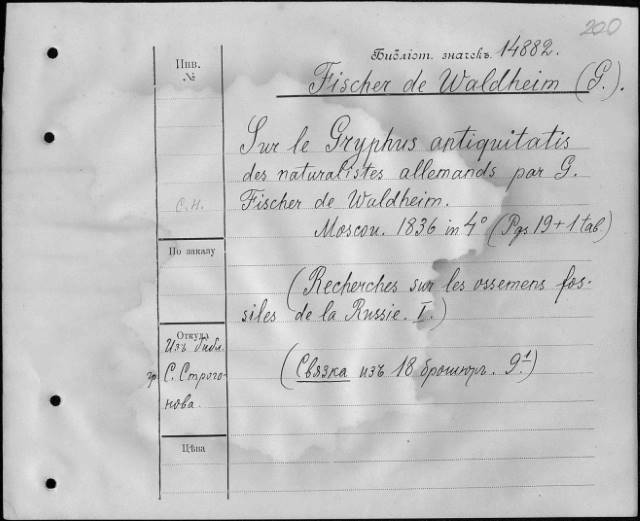 200
Библіот. значекъ. 14882.
Инв.
№
Fischer de Waldheim (G.).
Sur le Gryphus antiquitatis
des naturalistes allemands par G.
Fischer de Waldheim.
С.Н.
Moscou. 1836 in 4° (Pgs 19 + 1 tab)
По заказу
(Recherches sur les ossemens fos-
siles de la Russie. I.)
Откуда
Изъ библ.
гр. С. Строго-
нова.
(Связка изъ 18 брошюръ. 9.1)
Цѣна